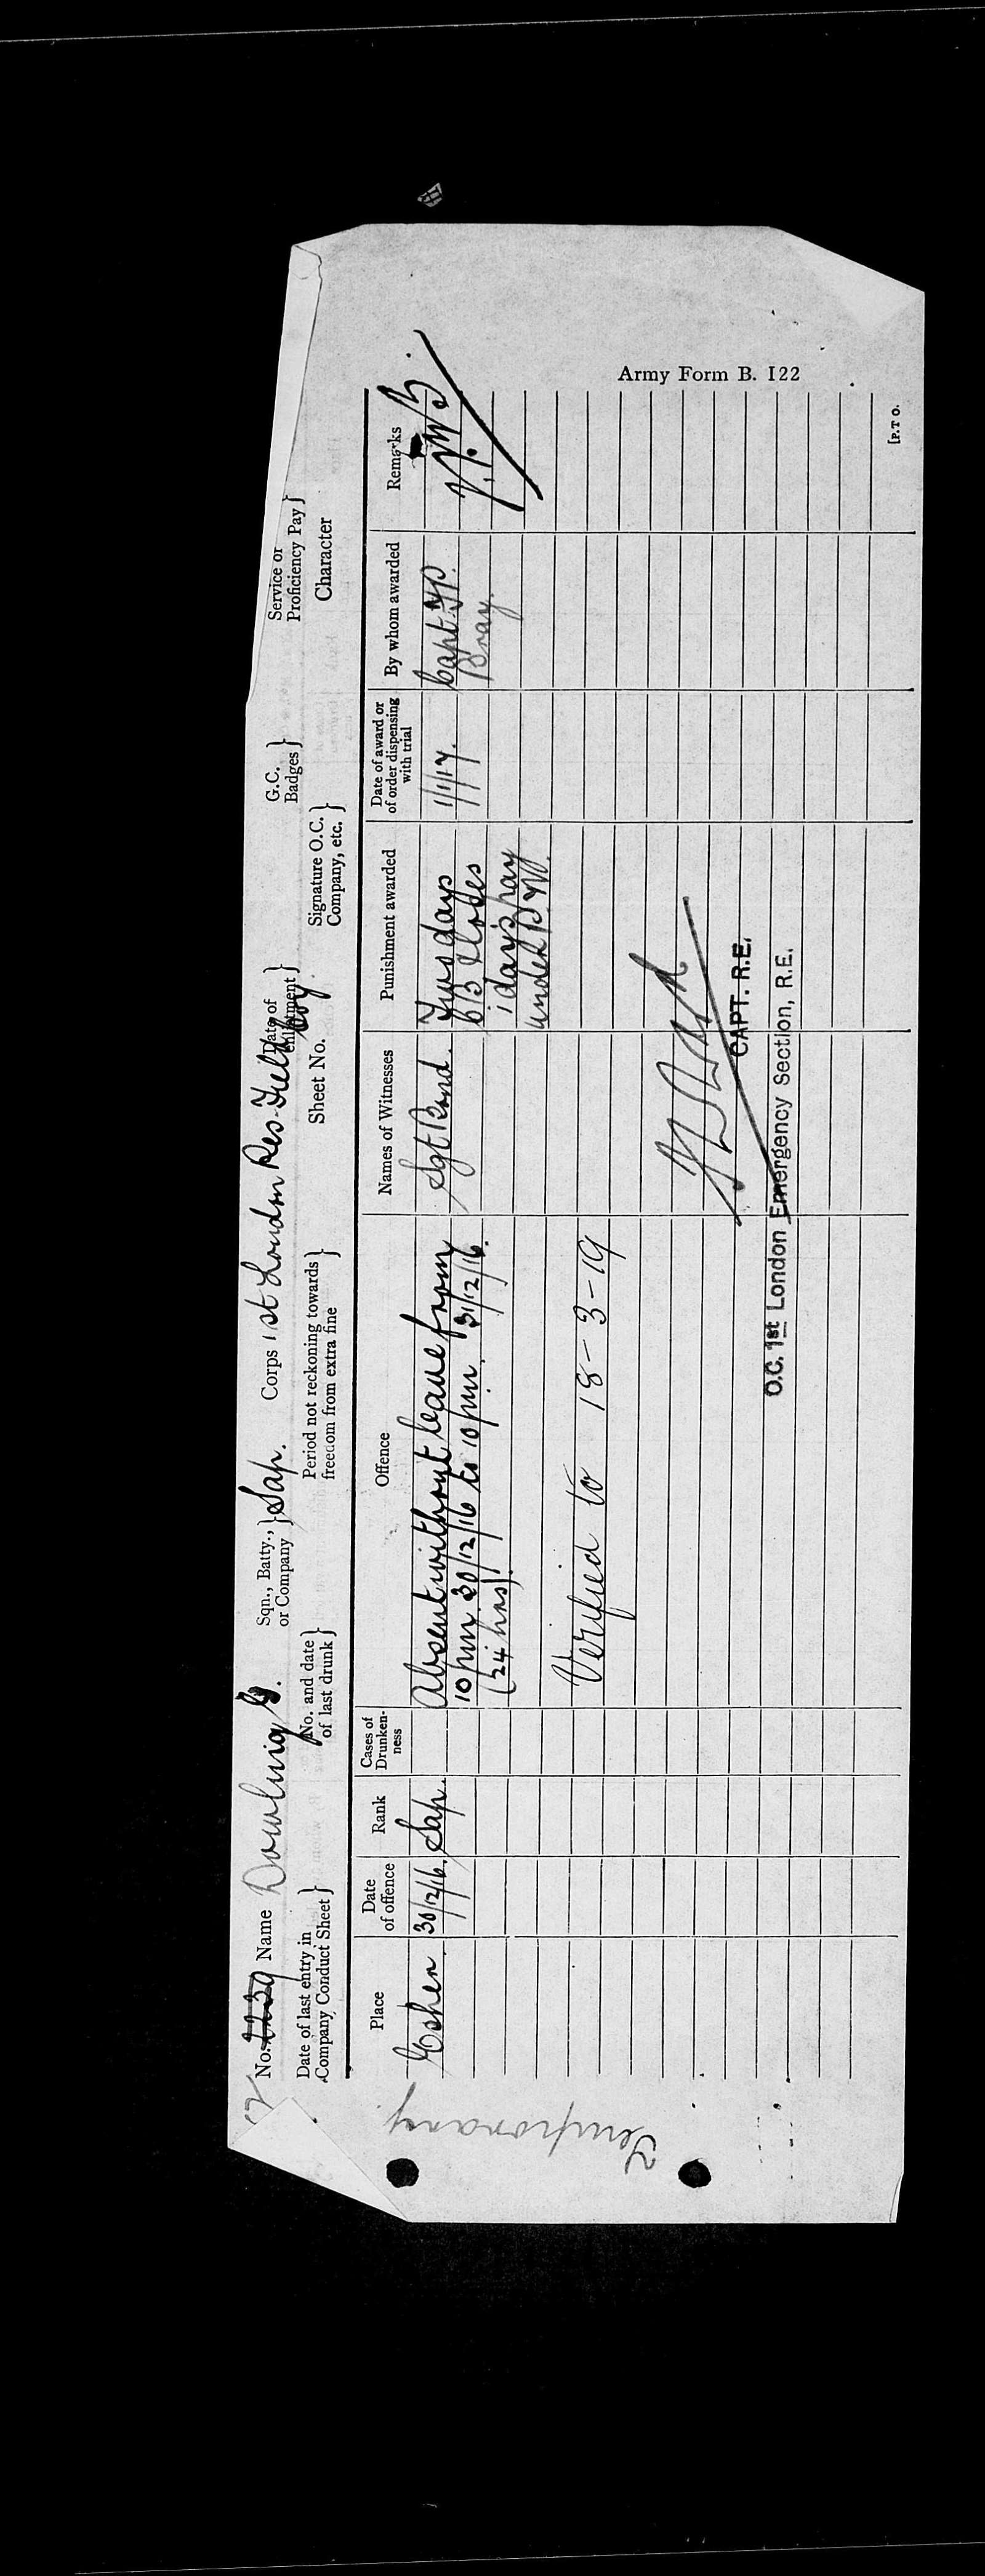 Army Form B. 122
No. 2239 Name Dowling G. Sqn., Batty., or Company } Sap. Corps 1st London Res. Field Coy. Date of enlistment } G.C. Badges } Service or Proficiency Pay }
Date of last entry in Company Conduct Sheet } No. and date of last drunk } Period not reckoning towards freedom from extra fine } Sheet No. Signature O.C. Company, etc. } Character
Place Date of offence Rank Cases of Drunken-ness Offence Names of Witnesses Punishment awarded Date of award or of order dispensing with trial By whom awarded Remarks
Esher 30/12/16. Sap. Absent without leave from Sgt Rand. Two days 1/1/17. Capt.
10 pm 30/12/16 to 10 pm. 31/12/16. CB & loses Bray.
(24 hrs). 1 day's pay
under
Verified to 18-3-19
CAPT. R.E.
O.C. 1st London Emergency Section, R.E.
[P.T.O.
Temporary